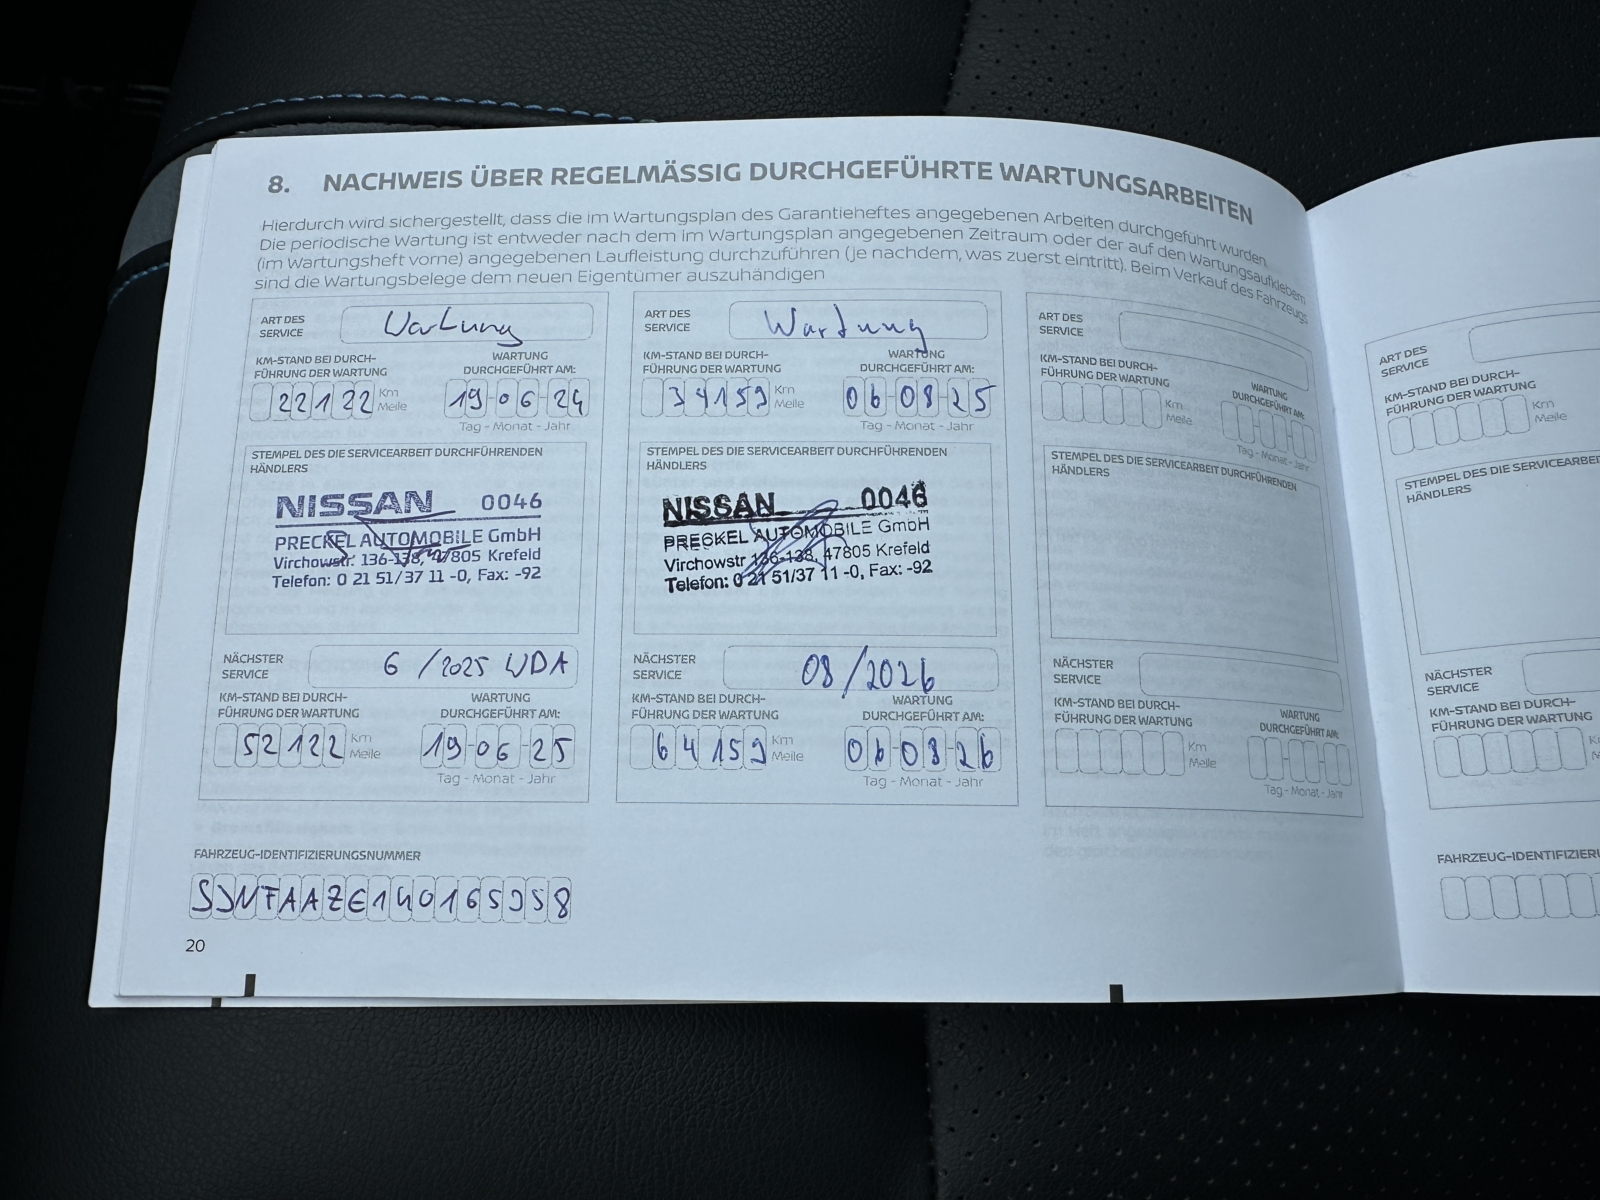 8. NACHWEIS ÜBER REGELMÄSSIG DURCHGEFÜHRTE WARTUNGSARBEITEN
Hierdurch wird sichergestellt, dass die im Wartungsplan des Garantieheftes angegebenen Arbeiten durchgeführt wurden.
Die periodische Wartung ist entweder nach dem im Wartungsplan angegebenen Zeitraum oder der auf den Wartungsaufklebern
(im Wartungsheft vorne) angegebenen Laufleistung durchzuführen (je nachdem, was zuerst eintritt). Beim Verkauf des Fahrzeugs
sind die Wartungsbelege dem neuen Eigentümer auszuhändigen
ART DES
SERVICE
Wartung
KM-STAND BEI DURCH-
FÜHRUNG DER WARTUNG
WARTUNG
DURCHGEFÜHRT AM:
22122 Km
Meile
19-06-24
Tag - Monat - Jahr
STEMPEL DES DIE SERVICEARBEIT DURCHFÜHRENDEN
HÄNDLERS
NISSAN 0046
PRECKEL AUTOMOBILE GmbH
Virchowstr. 136-138, 47805 Krefeld
Telefon: 0 21 51/37 11 -0, Fax: -92
NÄCHSTER
SERVICE
6 /2025 WDA
KM-STAND BEI DURCH-
FÜHRUNG DER WARTUNG
WARTUNG
DURCHGEFÜHRT AM:
52122 Km
Meile
19-06-25
Tag - Monat - Jahr
ART DES
SERVICE
Wartung
KM-STAND BEI DURCH-
FÜHRUNG DER WARTUNG
WARTUNG
DURCHGEFÜHRT AM:
34159 Km
Meile
06-08-25
Tag - Monat - Jahr
STEMPEL DES DIE SERVICEARBEIT DURCHFÜHRENDEN
HÄNDLERS
NISSAN 0046
PRECKEL AUTOMOBILE GmbH
Virchowstr 136-138, 47805 Krefeld
Telefon: 0 21 51/37 11 -0, Fax: -92
NÄCHSTER
SERVICE
08/2026
KM-STAND BEI DURCH-
FÜHRUNG DER WARTUNG
WARTUNG
DURCHGEFÜHRT AM:
64159 Km
Meile
06-08-26
Tag - Monat - Jahr
ART DES
SERVICE
KM-STAND BEI DURCH-
FÜHRUNG DER WARTUNG
WARTUNG
DURCHGEFÜHRT AM:
Km
Meile
Tag - Monat - Jahr
STEMPEL DES DIE SERVICEARBEIT DURCHFÜHRENDEN
HÄNDLERS
NÄCHSTER
SERVICE
KM-STAND BEI DURCH-
FÜHRUNG DER WARTUNG
WARTUNG
DURCHGEFÜHRT AM:
Km
Meile
Tag - Monat - Jahr
FAHRZEUG-IDENTIFIZIERUNGSNUMMER
SJNFAAZE1U0165958
20
ART DES
SERVICE
KM-STAND BEI DURCH-
FÜHRUNG DER WARTUNG
Km
Meile
STEMPEL DES DIE SERVICEARBEI
HÄNDLERS
NÄCHSTER
SERVICE
KM-STAND BEI DURCH-
FÜHRUNG DER WARTUNG
FAHRZEUG-IDENTIFIZIERU